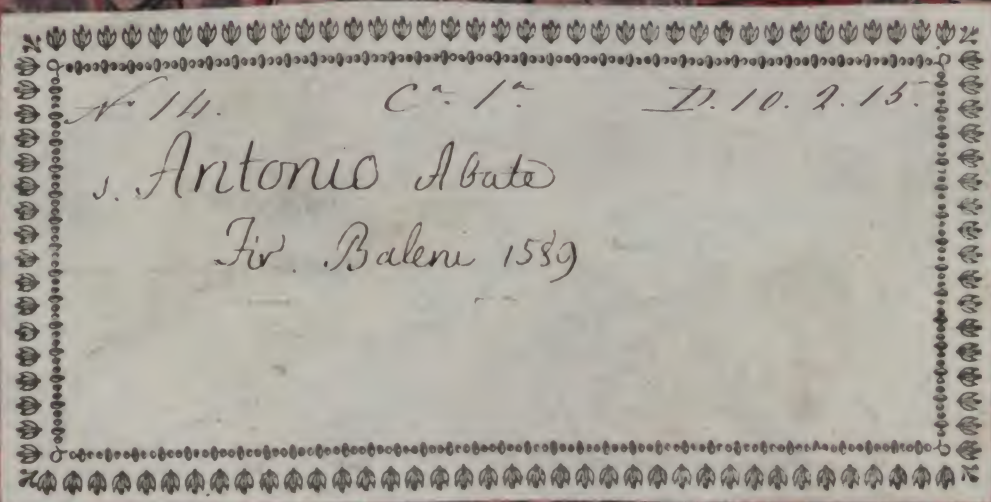 N. 14. Cª. 1ª. D. 10. 2. 15.
s. Antonio Abate
Fir. Baleni 1589